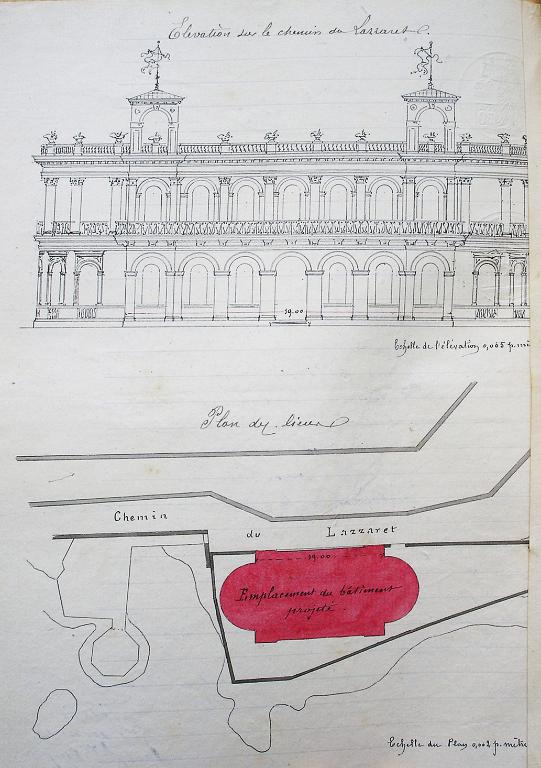 Elevation sur le chemin du Lazzaret.
19.00
Echelle de l'élévation 0,005 p. mè
Plan des lieux
Chemin du Lazzaret
19.00
Emplacement du bâtiment
projeté.
Echelle du Plan 0,002 p. mètre